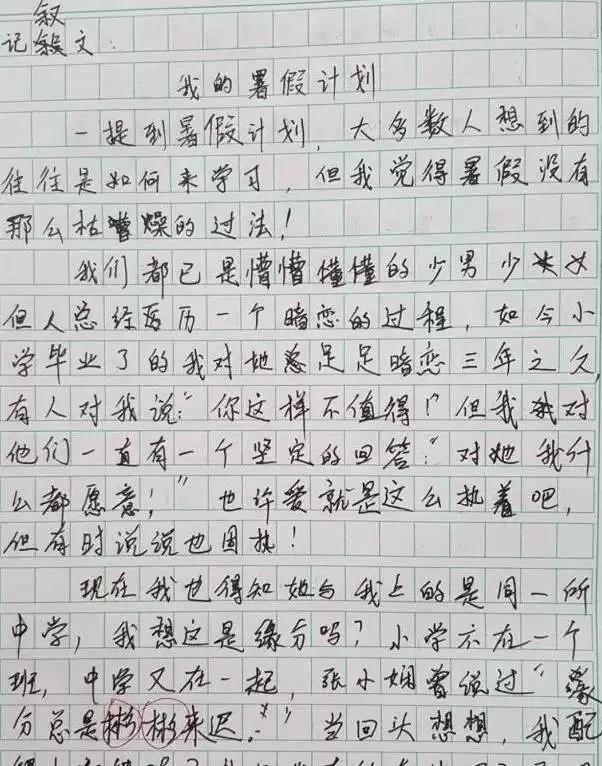 叙
记叙文:
我的暑假计划
一提到暑假计划,大多数人想到的
往往是如何来学习,但我觉得暑假没有
那么枯燥的过法!
我们都已是懵懵懂懂的少男少女
但人总经历一个暗恋的过程,如今小
学毕业了的我对她总足足暗恋三年之久,
有人对我说:“你这样不值得!”但我对
他们一直有一个坚定的回答:“对她我什
么都愿意!”也许爱就是这么执着吧,
但有时说说也固执!
现在我也得知她与我上的是同一所
中学,我想这是缘分吗?小学不在一个
班,中学又在一起,张小娴曾说过“缘
分总是彬彬来迟。”当回头想想,我配